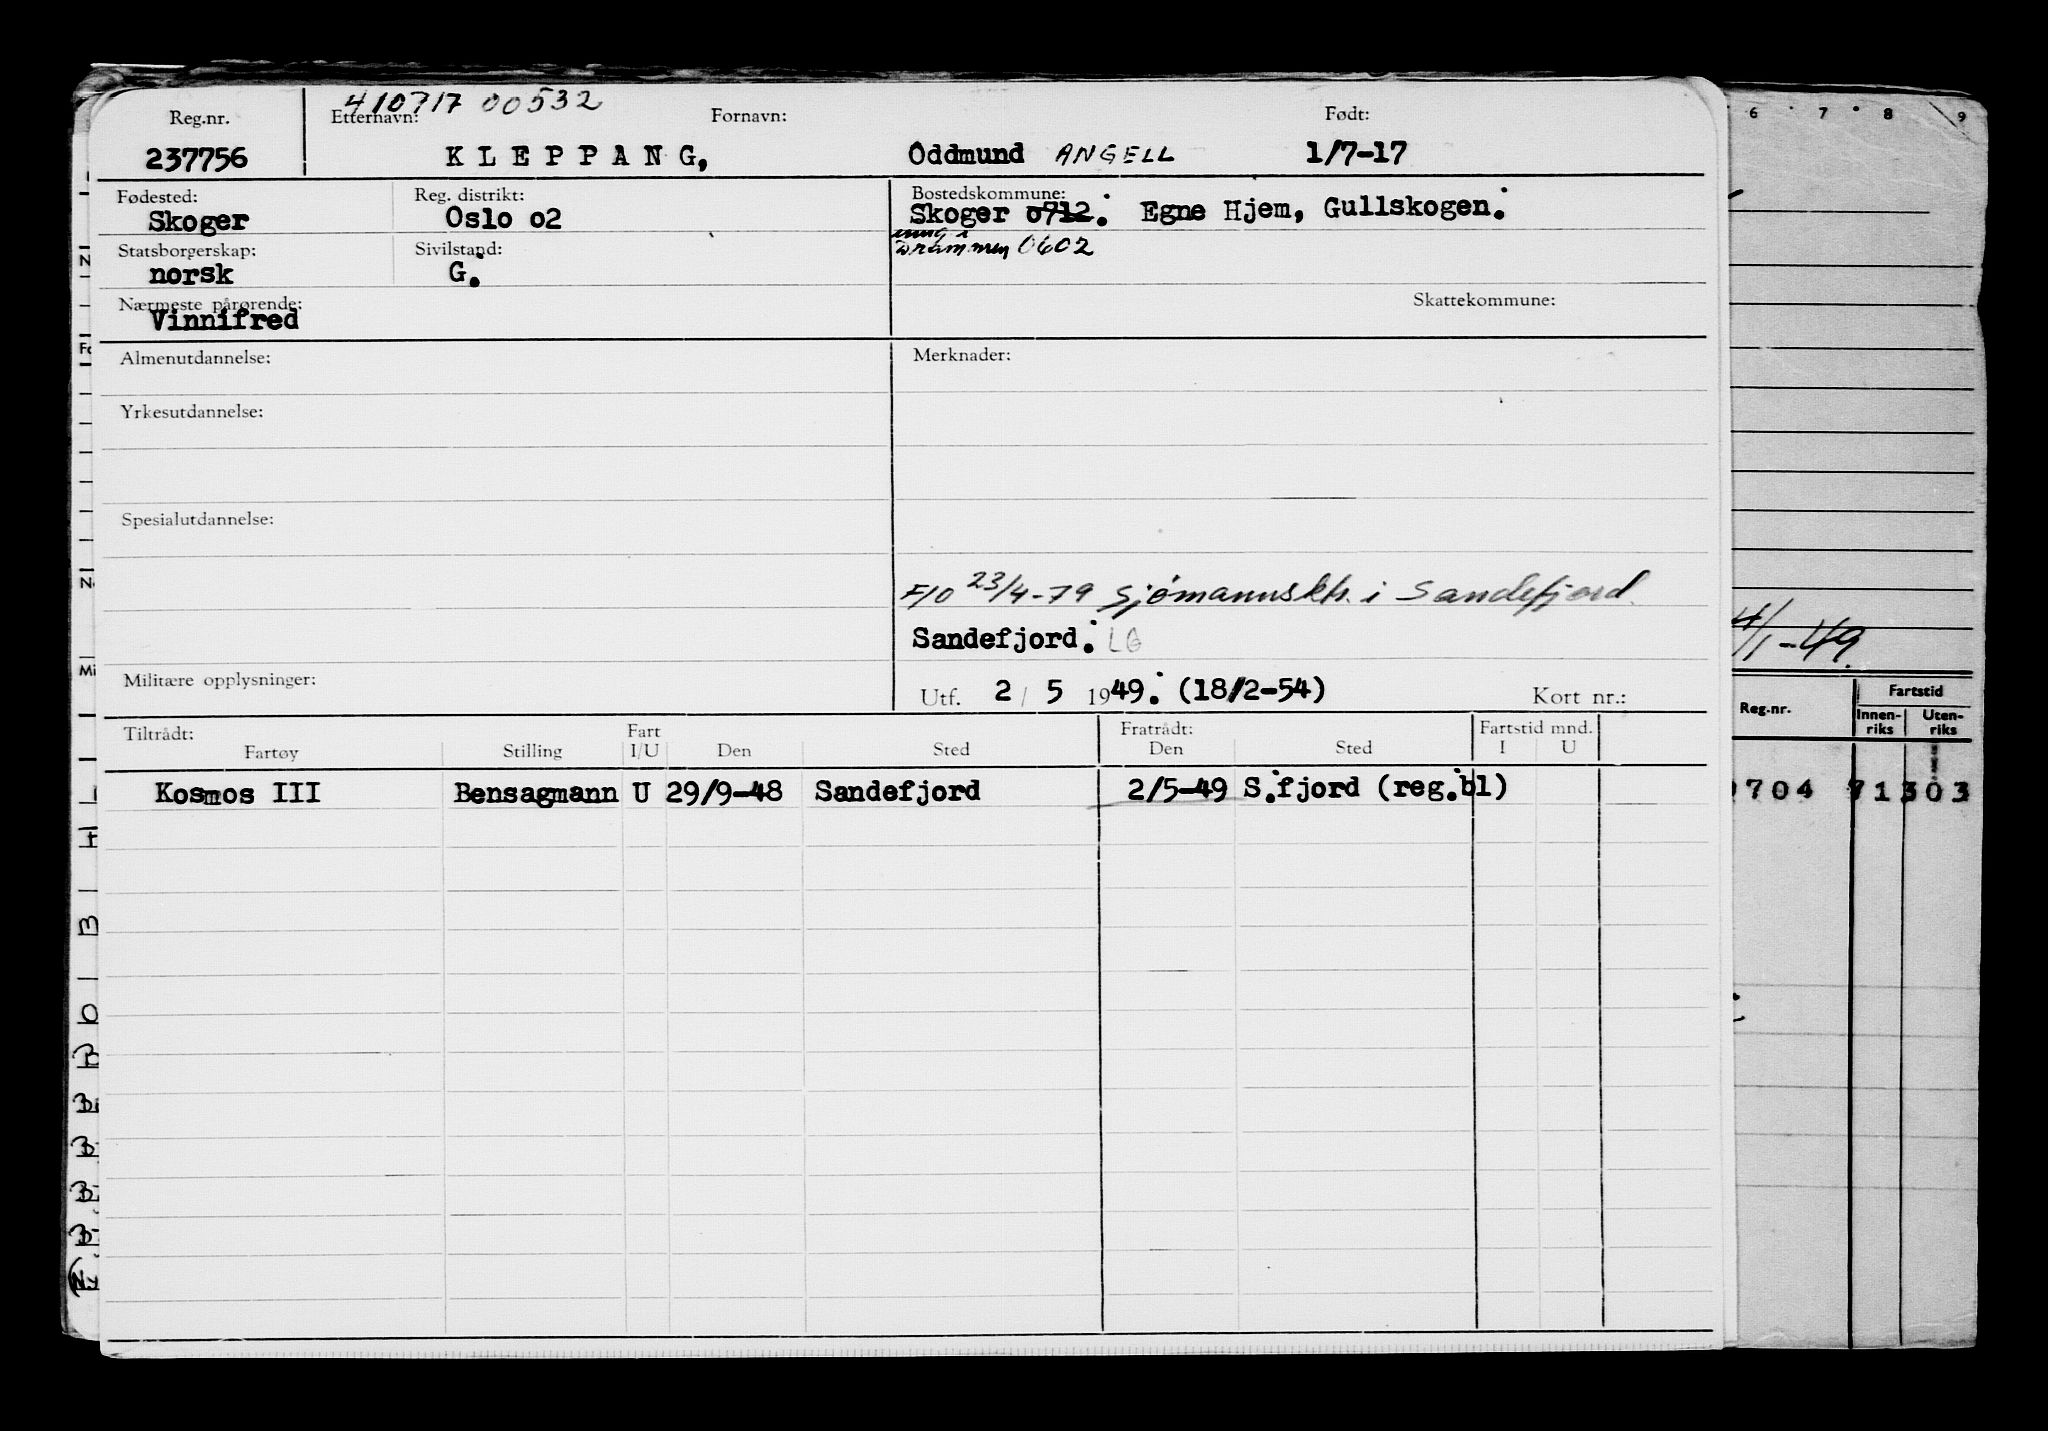 410717 00532
Reg.nr. Etternavn: Fornavn: Født:
237756 KLEPPANG, Oddmund ANGELL 1/7-17
Fødested: Reg. distrikt: Bostedskommune:
Skoger Oslo o2 Skoger o712. Egne Hjem, Gullskogen.
Statsborgerskap: Sivilstand: Drammen 0602
norsk G.
Nærmeste pårørende: Skattekommune:
Vinnifred
Almenutdannelse: Merknader:
Yrkesutdannelse:
Spesialutdannelse:
F/O 23/4-79 Sjømannsktr. i Sandefjord.
Sandefjord. LG
Militære opplysninger: Utf. 2 / 5 1949. (18/2-54) Kort nr.:
Tiltrådt: Fart Fratrådt: Fartstid mnd.
Fartøy Stilling I/U Den Sted Den Sted I U
Kosmos III Bensagmann U 29/9-48 Sandefjord 2/5-49 S.fjord (reg.bl)
6 7 8 9
4/1-49.
Reg.nr. Fartstid
Innen-riks Uten-riks
704 71303